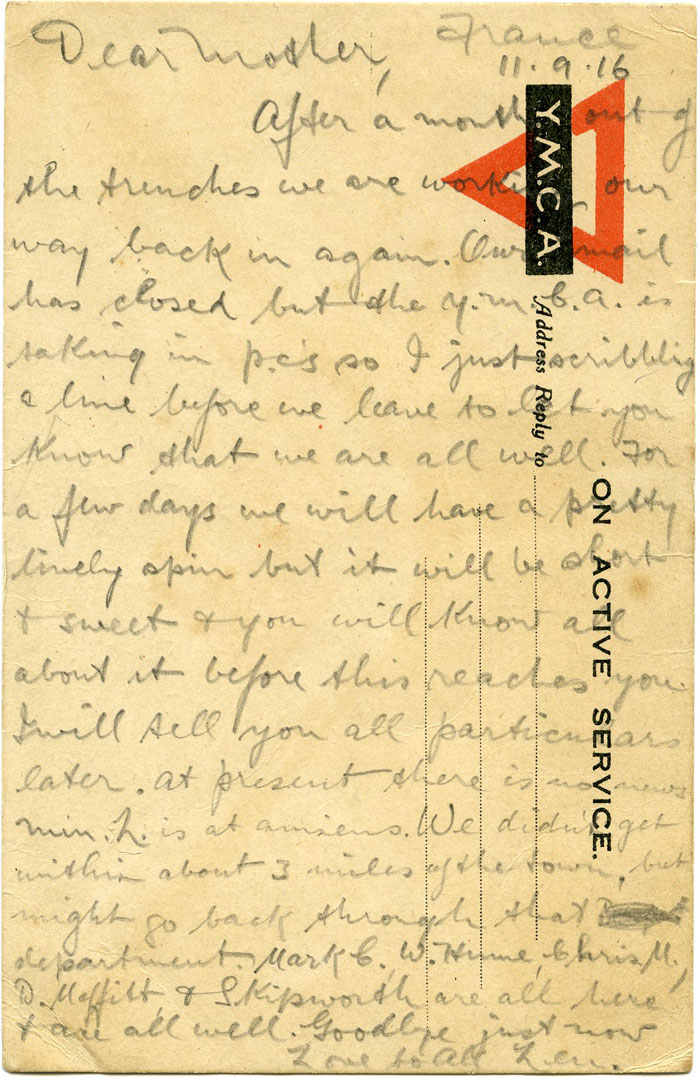 Dear Mother, France
11.9.16
After a month out of
the trenches we are working our
way back in again. Our mail
has closed but the Y.M.C.A. is
taking in p.c's so I just scribblig
a line before we leave to let you
know that we are all well. For
a few days we will have a pretty
lively spin but it will be short
& sweet & you will know all
about it before this reaches you.
I will tell you all particulars
later. At present there is no news
Min. L. is at amiens. We didn't get
within about 3 miles of the town, but
might go back through that
department. Mark C, W. Hume, Chris M.,
D. Moffitt, & Skipworth are all here
& are all well. Goodbye just now
Love to all Len.
Y.M.C.A.
Address Reply to
ON ACTIVE SERVICE.